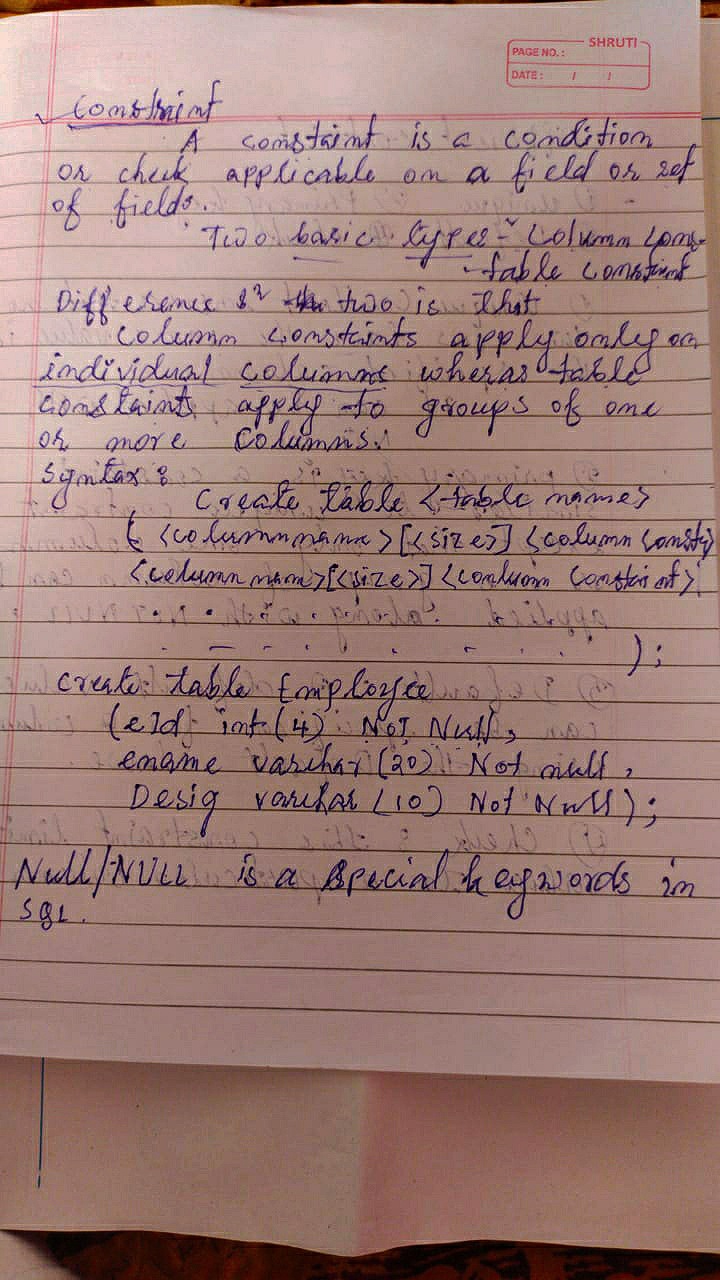 SHRUTI
PAGE NO.:
DATE: / /
Constraint
A constaint is a condition
or check applicable on a field or set
of fields.
Two basic types - Column Cons-
- table constraint
Difference two is that
Column constaints apply only on
individual columns wheras table
constaints apply to groups of one
or more columns.
Syntax:
Create table <table name>
( <column name>[<size>] <column
<column name>[<size>] <conlumn Constraint>
. - - . . - . . );
Create table Employee
(eId int(4) Not Null,
ename varchar(20) Not null,
Desig varchar(10) Not Null);
Null/NULL is a special keywords in
SQL.